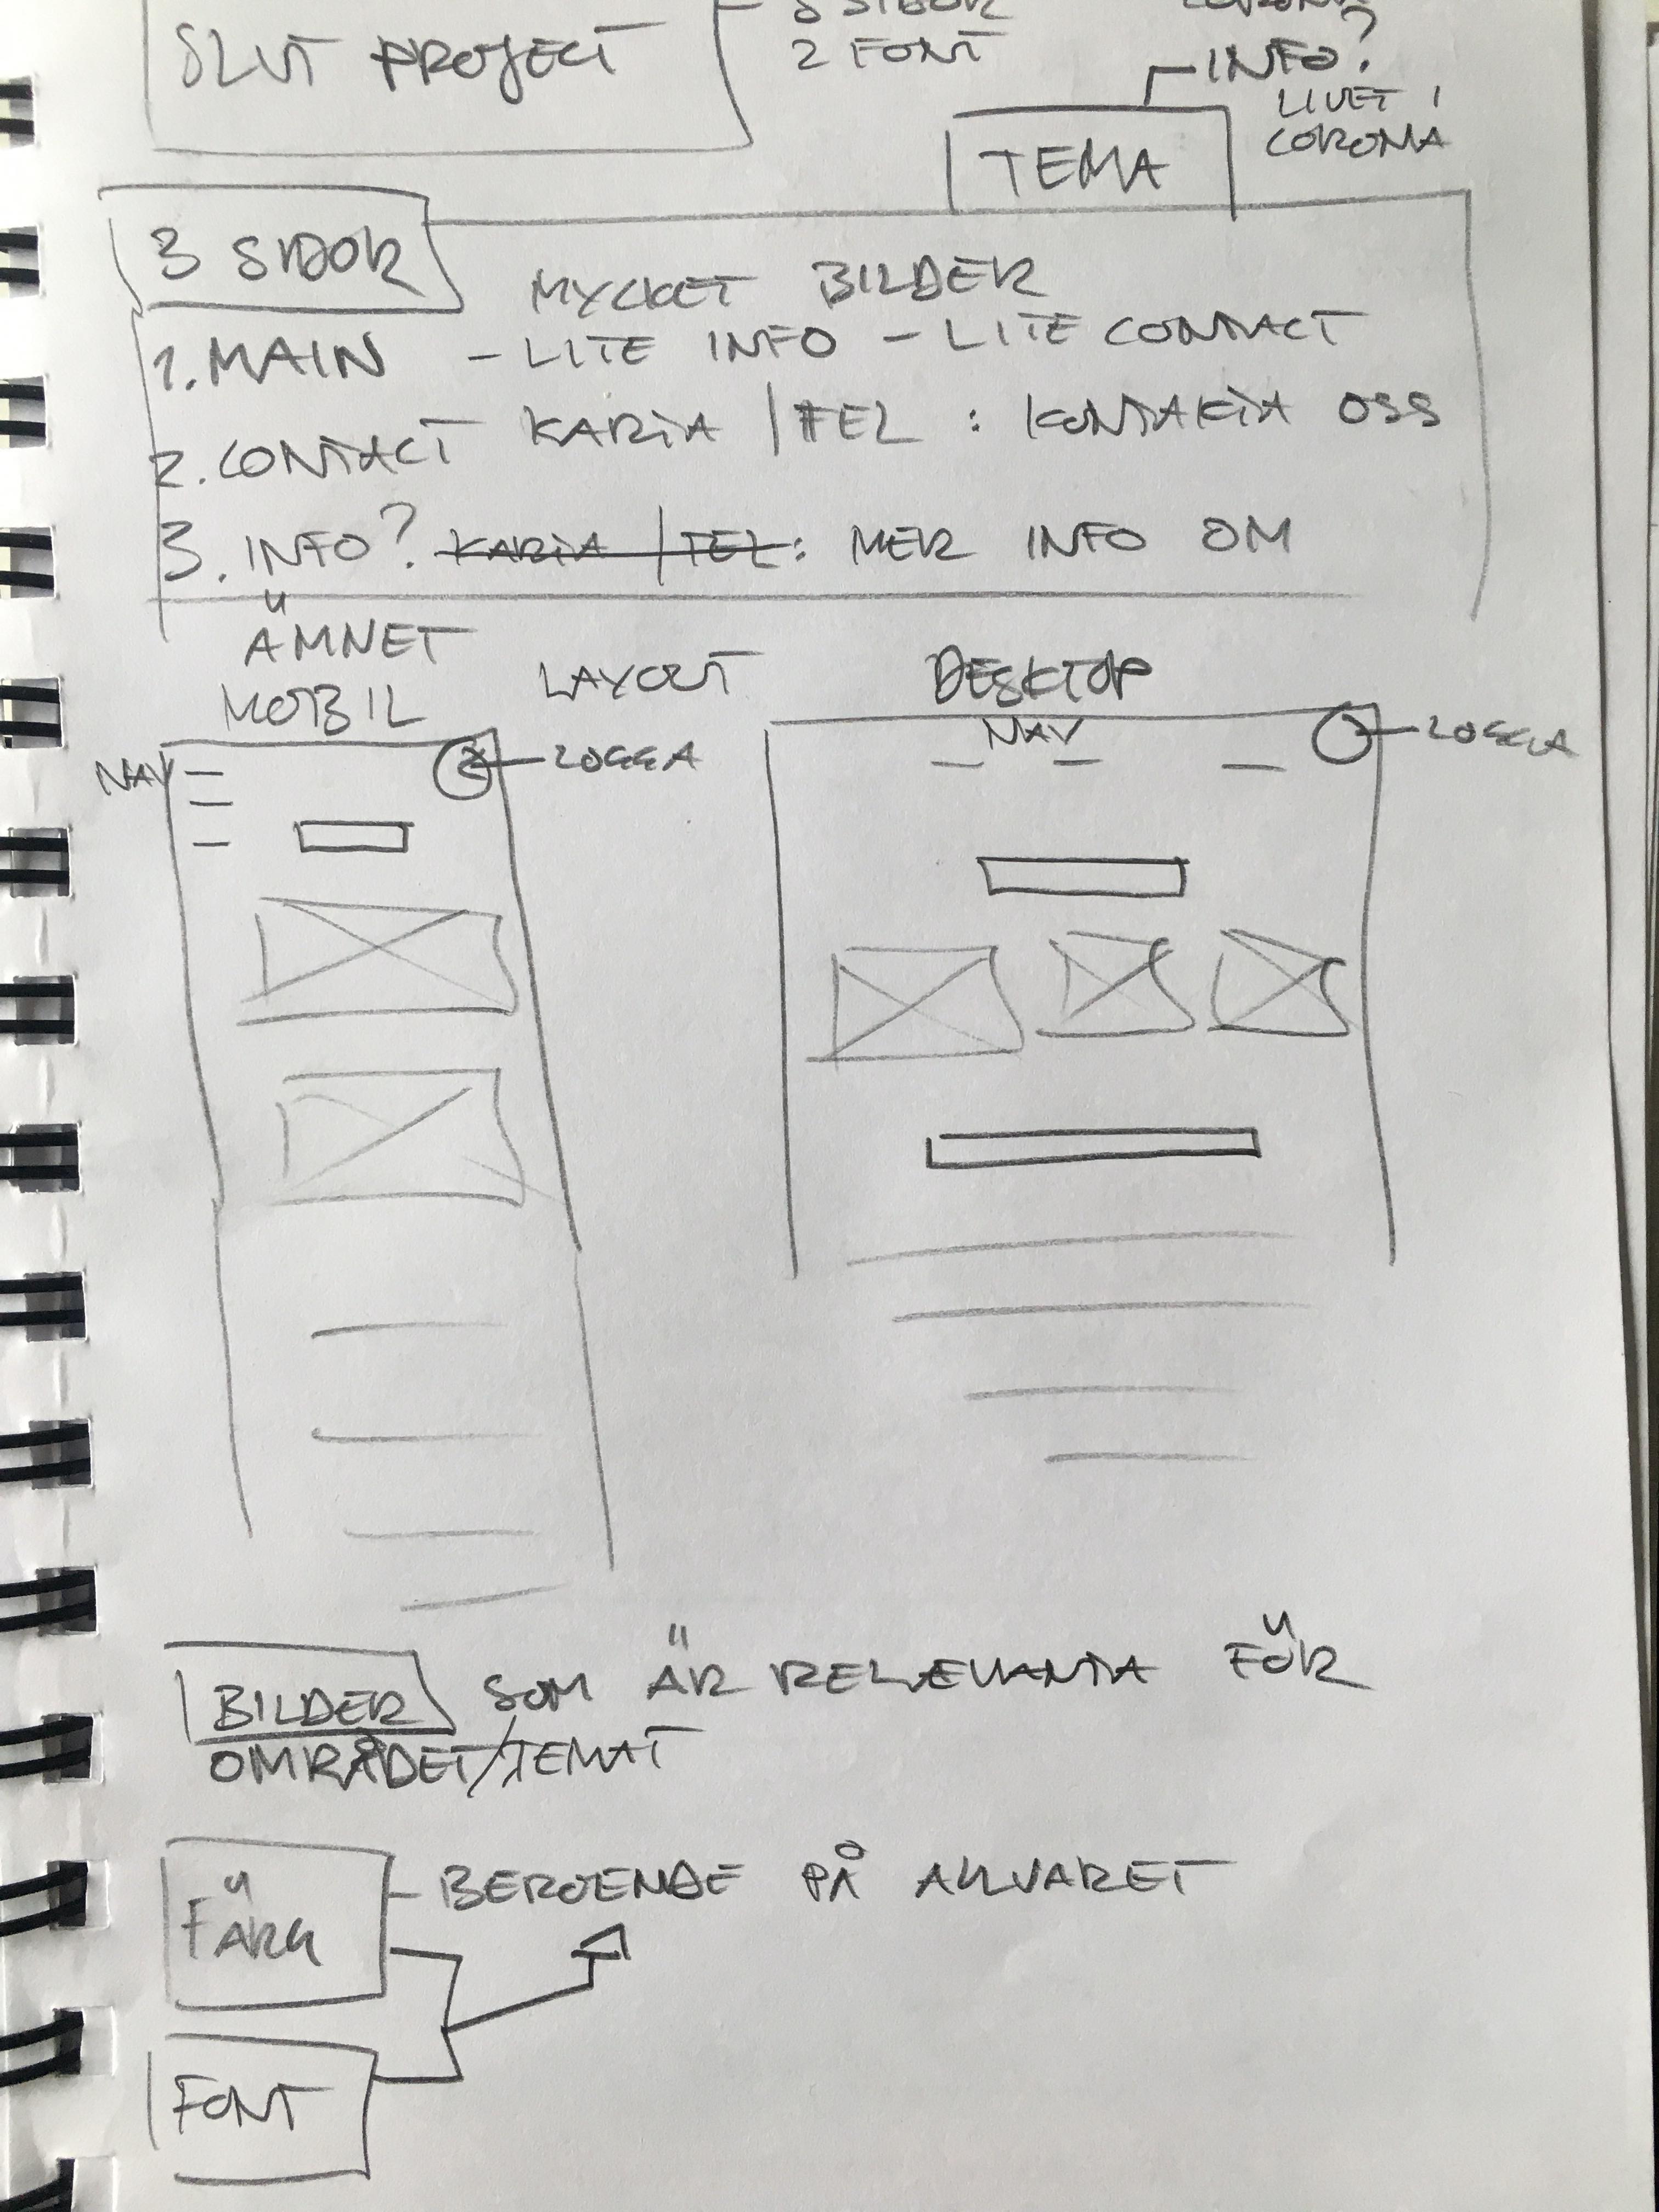 3 SIDOR
SLUT PROJECT
2 FONT
INFO?
LIVET I
CORONA
TEMA
3 SIDOR
MYCKET BILDER
1. MAIN - LITE INFO - LITE CONTACT
2. CONTACT KARTA / TEL : KONTAKTA OSS
3. INFO? KARTA / TEL: MER INFO OM
ÄMNET
MOBIL LAYOUT DESKTOP
NAV LOGGA
NAV LOGGA
BILDER SOM ÄR RELEVANTA FÖR
OMRÅDET/TEMAT
FÄRG - BEROENDE PÅ ALLVARET
FONT